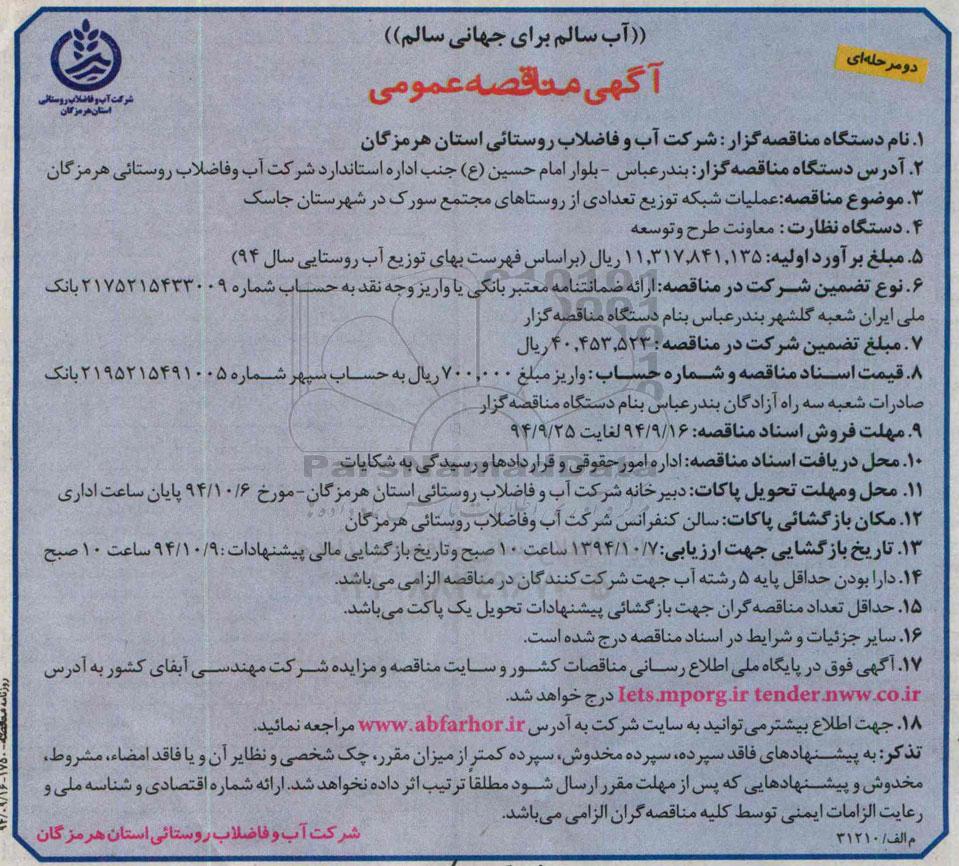 ((آب سالم برای جهانی سالم))
دومرحله‌ای
آگهی مناقصه عمومی
شرکت آب و فاضلاب روستائی
استان هرمزگان
۱. نام دستگاه مناقصه گزار : شرکت آب و فاضلاب روستائی استان هرمزگان
۲. آدرس دستگاه مناقصه گزار: بندرعباس - بلوار امام حسین (ع) جنب اداره استاندارد شرکت آب وفاضلاب روستائی هرمزگان
۳. موضوع مناقصه:عملیات شبکه توزیع تعدادی از روستاهای مجتمع سورک در شهرستان جاسک
۴. دستگاه نظارت : معاونت طرح وتوسعه
۵. مبلغ برآورد اولیه: ۱۱,۳۱۷,۸۴۱,۱۳۵ ریال (براساس فهرست بهای توزیع آب روستایی سال ۹۴)
۶. نوع تضمین شرکت در مناقصه: ارائه ضمانتنامه معتبر بانکی یا واریز وجه نقد به حساب شماره ۲۱۷۵۲۱۵۴۳۳۰۰۹ بانک
ملی ایران شعبه گلشهر بندرعباس بنام دستگاه مناقصه گزار
۷. مبلغ تضمین شرکت در مناقصه : ۴۰,۴۵۳,۵۲۳ ریال
۸. قیمت اسناد مناقصه و شماره حساب : واریز مبلغ ۷۰۰,۰۰۰ ریال به حساب سپهر شماره ۲۱۹۵۲۱۵۴۹۱۰۰۵ بانک
صادرات شعبه سه راه آزادگان بندرعباس بنام دستگاه مناقصه گزار
۹. مهلت فروش اسناد مناقصه: ۹۴/۹/۱۶ لغایت ۹۴/۹/۲۵
۱۰. محل دریافت اسناد مناقصه: اداره امور حقوقی و قراردادها و رسیدگی به شکایات
ParsNamadData
۱۱. محل ومهلت تحویل پاکات: دبیرخانه شرکت آب و فاضلاب روستائی استان هرمزگان-مورخ ۹۴/۱۰/۶ پایان ساعت اداری
۱۲. مکان بازگشائی پاکات: سالن کنفرانس شرکت آب وفاضلاب روستائی هرمزگان
۱۳. تاریخ بازگشایی جهت ارزیابی: ۱۳۹۴/۱۰/۷ ساعت ۱۰ صبح وتاریخ بازگشایی مالی پیشنهادات: ۹۴/۱۰/۹ ساعت ۱۰ صبح
۱۴. دارا بودن حداقل پایه ۵ رشته آب جهت شرکت کنندگان در مناقصه الزامی می‌باشد.
۱۵. حداقل تعداد مناقصه گران جهت بازگشائی پیشنهادات تحویل یک پاکت می‌باشد.
۱۶. سایر جزئیات و شرایط در اسناد مناقصه درج شده است.
۱۷. آگهی فوق در پایگاه ملی اطلاع رسانی مناقصات کشور و سایت مناقصه و مزایده شرکت مهندسی آبفای کشور به آدرس
Iets.mporg.ir tender.nww.co.ir درج خواهد شد.
۱۸. جهت اطلاع بیشتر می‌توانید به سایت شرکت به آدرس www.abfarhor.ir مراجعه نمائید.
تذکر: به پیشنهادهای فاقد سپرده، سپرده مخدوش، سپرده کمتر از میزان مقرر، چک شخصی و نظایر آن و یا فاقد امضاء، مشروط،
مخدوش و پیشنهادهایی که پس از مهلت مقرر ارسال شود مطلقاً ترتیب اثر داده نخواهد شد. ارائه شماره اقتصادی و شناسه ملی و
رعایت الزامات ایمنی توسط کلیه مناقصه گران الزامی می‌باشد.
شرکت آب و فاضلاب روستائی استان هرمزگان
م الف/ ۳۱۲۱۰
روزنامه مناقصه - ۱۷۵۰ - ۹۴/۰۹/۱۶